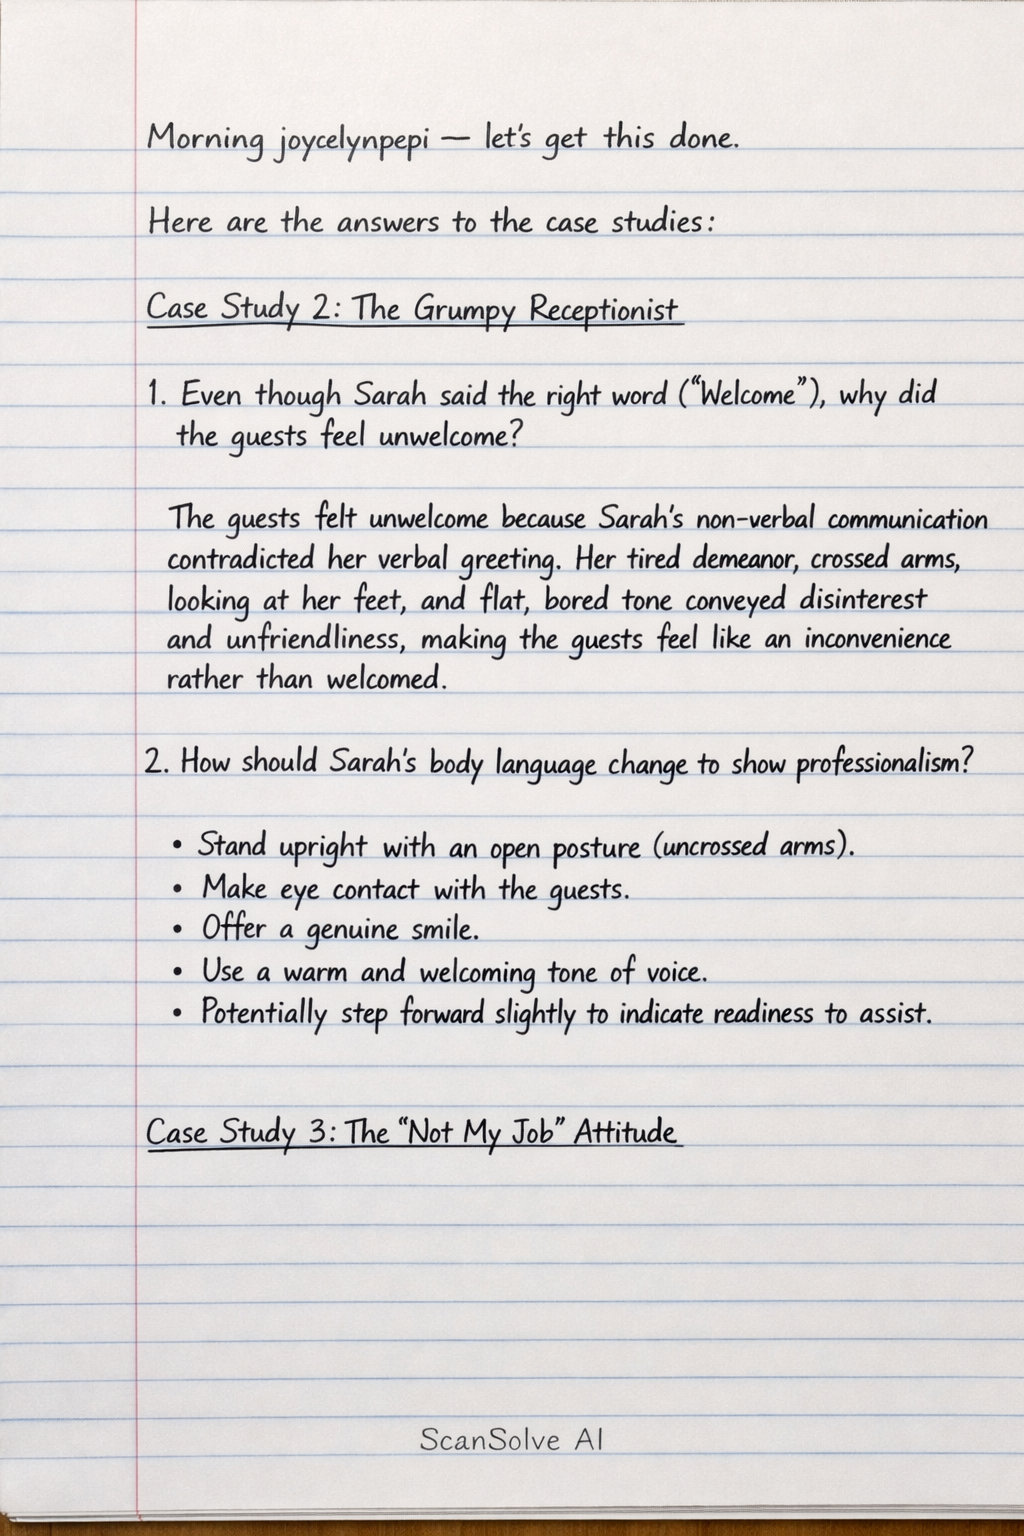 Morning joycelynpepi — let's get this done.
Here are the answers to the case studies:
Case Study 2: The Grumpy Receptionist
1. Even though Sarah said the right word (“Welcome”), why did
the guests feel unwelcome?
The guests felt unwelcome because Sarah's non-verbal communication
contradicted her verbal greeting. Her tired demeanor, crossed arms,
looking at her feet, and flat, bored tone conveyed disinterest
and unfriendliness, making the guests feel like an inconvenience
rather than welcomed.
2. How should Sarah's body language change to show professionalism?
• Stand upright with an open posture (uncrossed arms).
• Make eye contact with the guests.
• Offer a genuine smile.
• Use a warm and welcoming tone of voice.
• Potentially step forward slightly to indicate readiness to assist.
Case Study 3: The “Not My Job” Attitude
ScanSolve AI